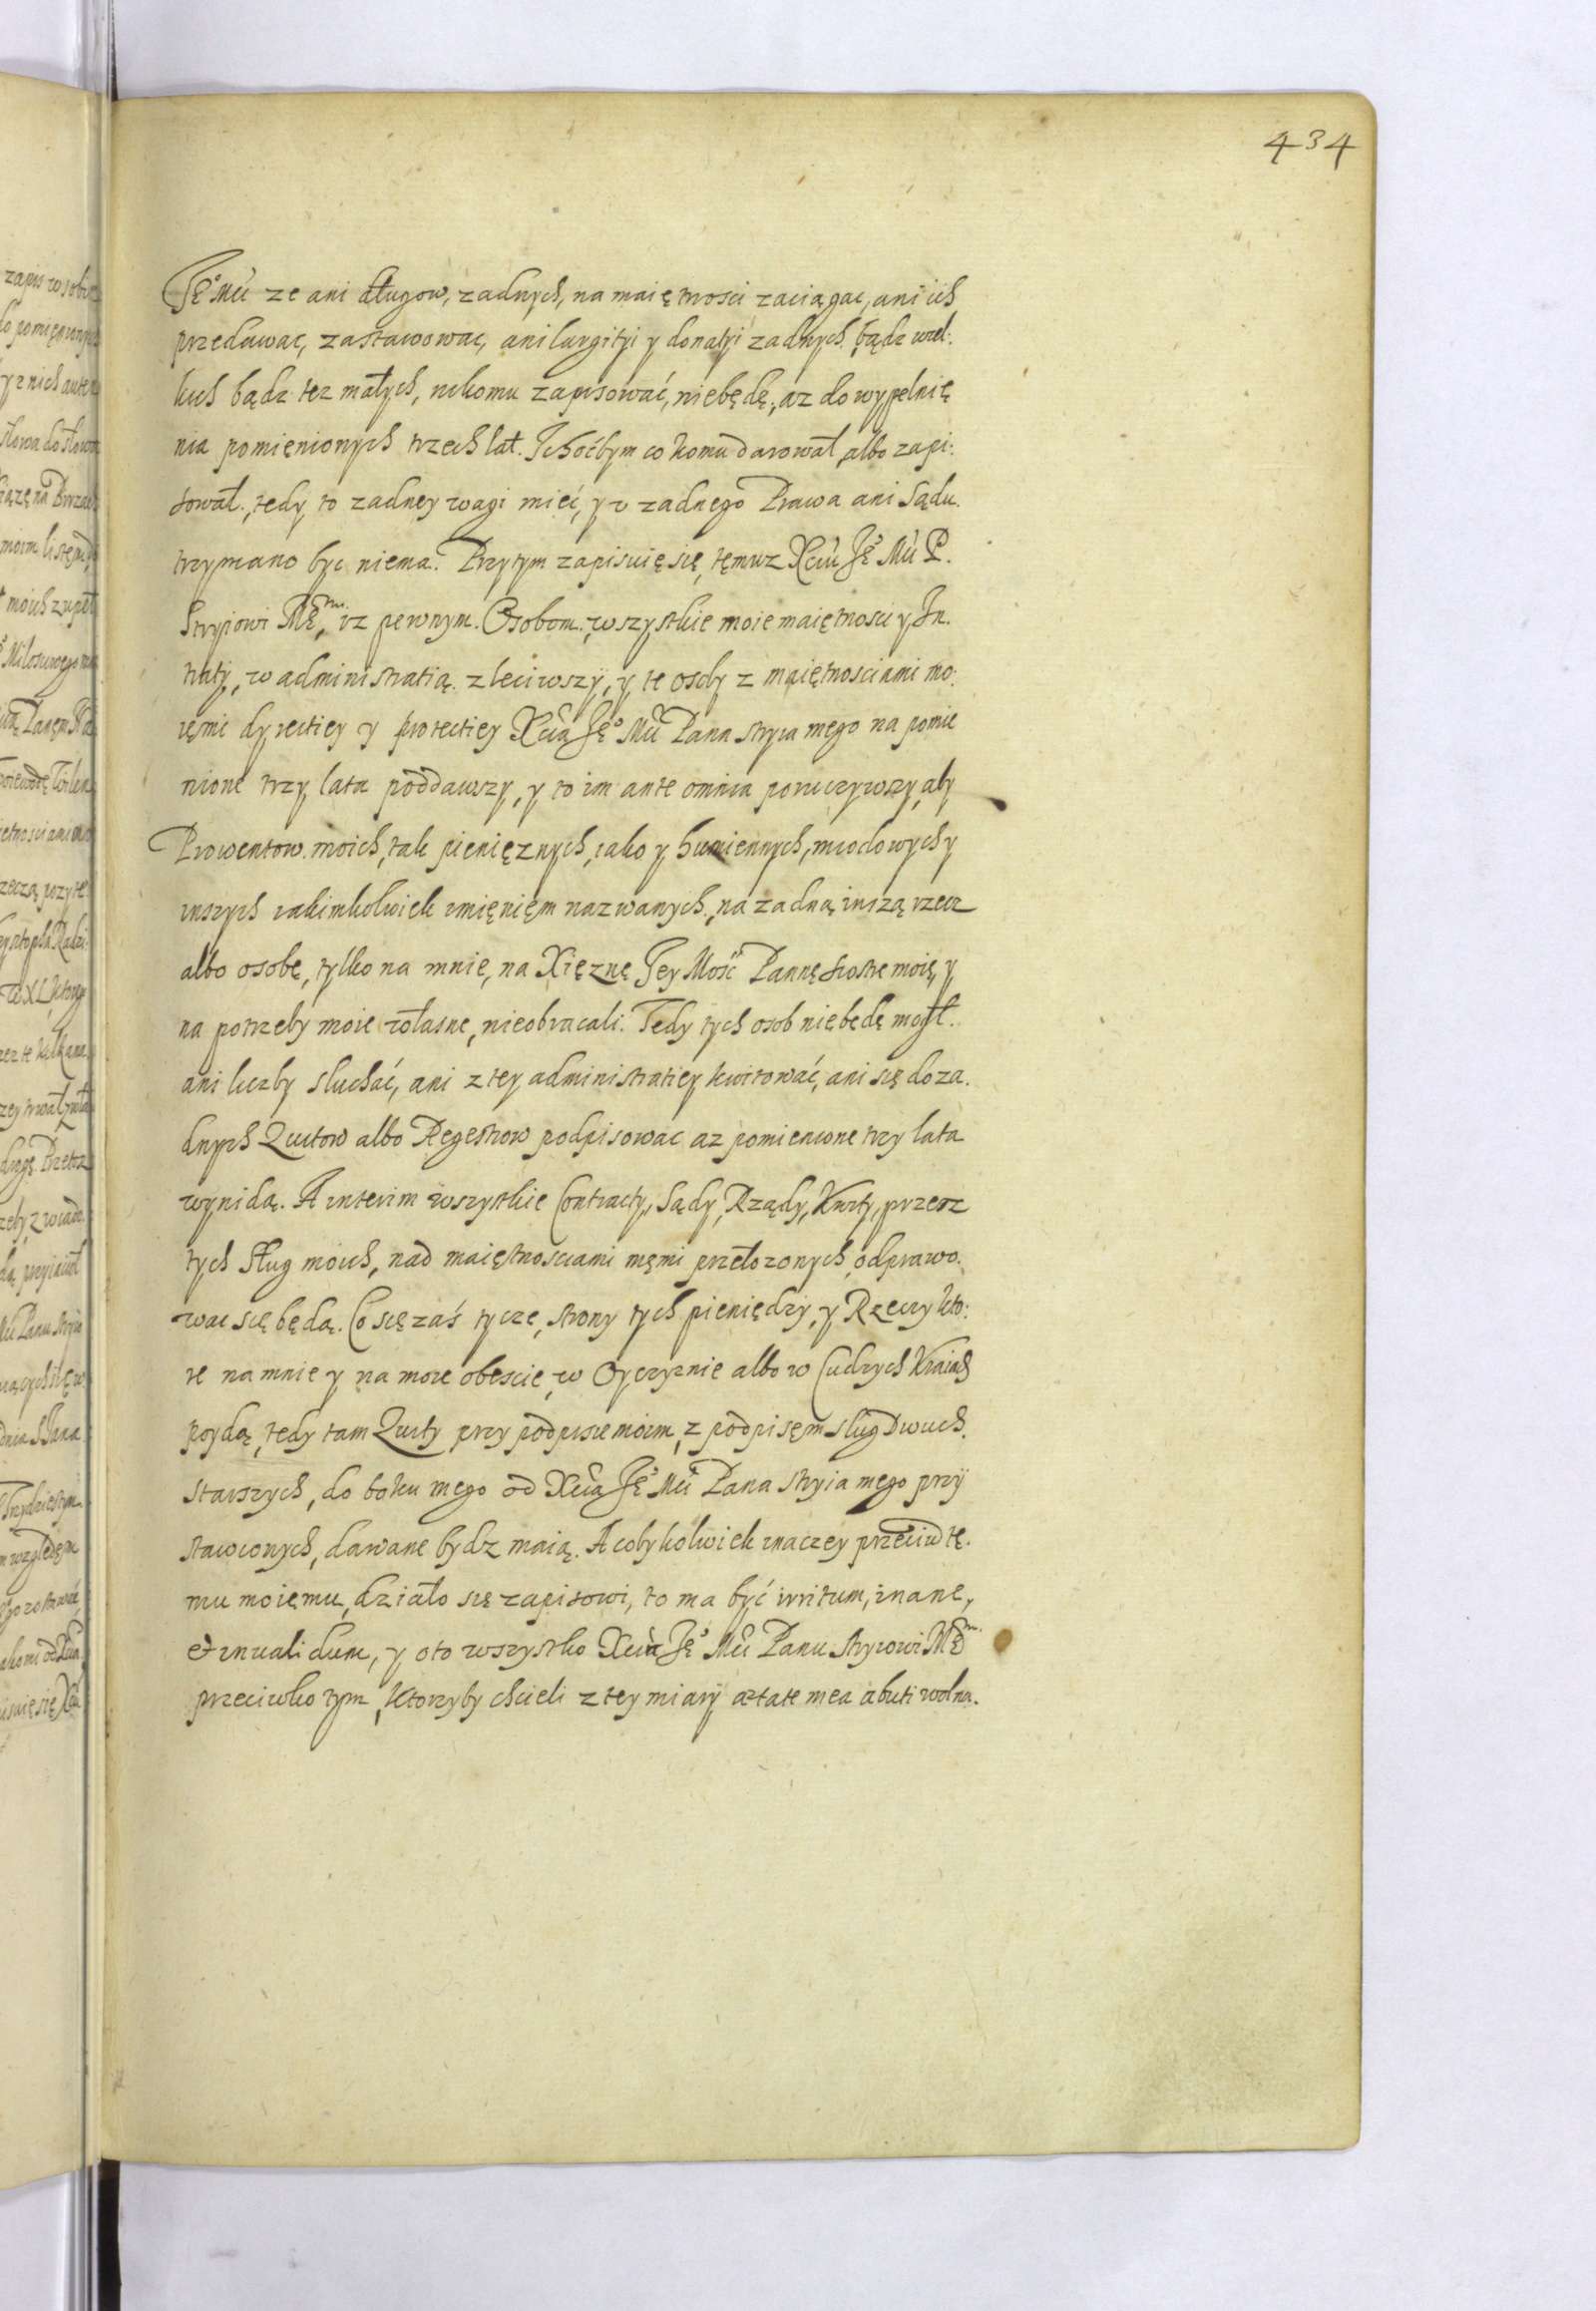 434
Jęo Mci ze ani długow, zadnych, na maiętnosci zaciągac, ani ich
przedawac, zastawowac, ani largityi y donatyi zadnych, bądz wiel:
kich bądz tez małych, nikomu zapisować, niebędę, az do wypełnię
nia pomięnionych trzech lat. I choćbym co komu darował, albo zapi:
sował, tedy to zadney wagi mieć, y v zadnego Prawa ani Sądu
trzymano byc niema. Przytym zapisuię się, tęmuz Xciu Jęo Mci P.
Stryiowi Męmu, iz pewnym Osobom, wszystkie moie maiętnosci y In.
traty, w administratią zleciwszy, y te osoby z maiętnosciami mo:
ięmi dyrectiey y protectiey Xcia Jęo Mci Pana stryia mego na pomie
nione trzy lata poddawszy, y to im ante omnia poruczywszy, aby
Prowentow moich, tak pienięznych, iako y humiennych, miodowych y
inszych iakimkolwiek imięnięm nazwanych, na zadną inszą rzecz
albo osobę, tylko na mnie, na Xięznę Jey Mość Pannę siostrę moię, y
na potrzeby moie własne, nieobracali. Tedy tych osob niebędę mogł
ani liczby słuchać, ani z tey administratiey kwitować, ani się do za.
dnych Quitow albo Regestrow podpisowac az pomienione trzy lata
wynidą. A interim wszystkie Contracty, Sądy, Rządy, Kwity, przez
tych Sług moich, nad maiętnosciami męmi przełozonych, odprawo.
wac się będą. Co się zaś tycze, strony tych pieniędzy, y Rzeczy kto:
re na mnie y na moie obeście, w Oyczyznie albo w Cudzych Kraiach
poydą, tedy tam Quity przy podpisie moim, z podpisęm sług Dwuch
starszych, do boku mego od Xcia Jęo Mci Pana stryia mego przy
stawionych, dawane bydz maią. A cobykolwiek inaczey przeciw tę.
mu moięmu, działo się zapisowi, to ma być irritum, inane,
et inualidum, y oto wszystko Xciu Jęo Mci Panu Stryiowi Męmu
przeciwko tym, ktorzyby chcieli z tey miary ætate mea abuti wolna.